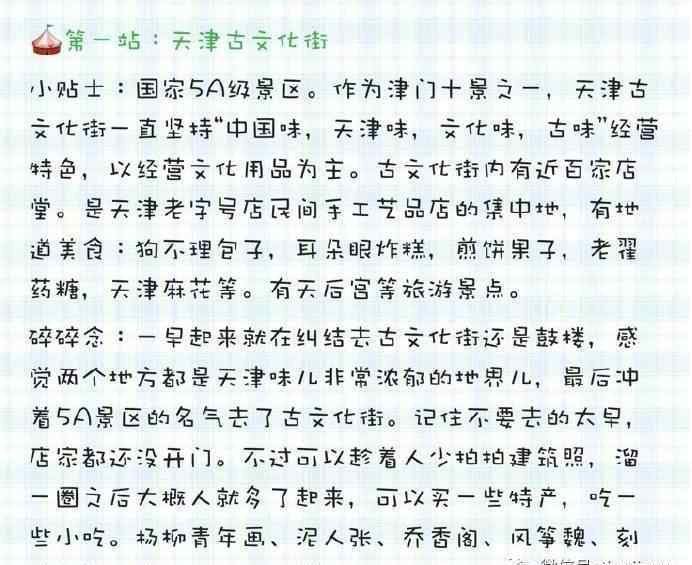 第一站：天津古文化街
小贴士：国家5A级景区。作为津门十景之一，天津古
文化街一直坚持“中国味，天津味，文化味，古味”经营
特色，以经营文化用品为主。古文化街内有近百家店
堂。是天津老字号店民间手工艺品店的集中地，有地
道美食：狗不理包子，耳朵眼炸糕，煎饼果子，老翟
药糖，天津麻花等。有天后宫等旅游景点。
碎碎念：一早起来就在纠结去古文化街还是鼓楼，感
觉两个地方都是天津味儿非常浓郁的地界儿，最后冲
着5A景区的名气去了古文化街。记住不要去的太早，
店家都还没开门。不过可以趁着人少拍拍建筑照，溜
一圈之后大概人就多了起来，可以买一些特产，吃一
些小吃。杨柳青年画、泥人张、乔香阁、风筝魏、刻